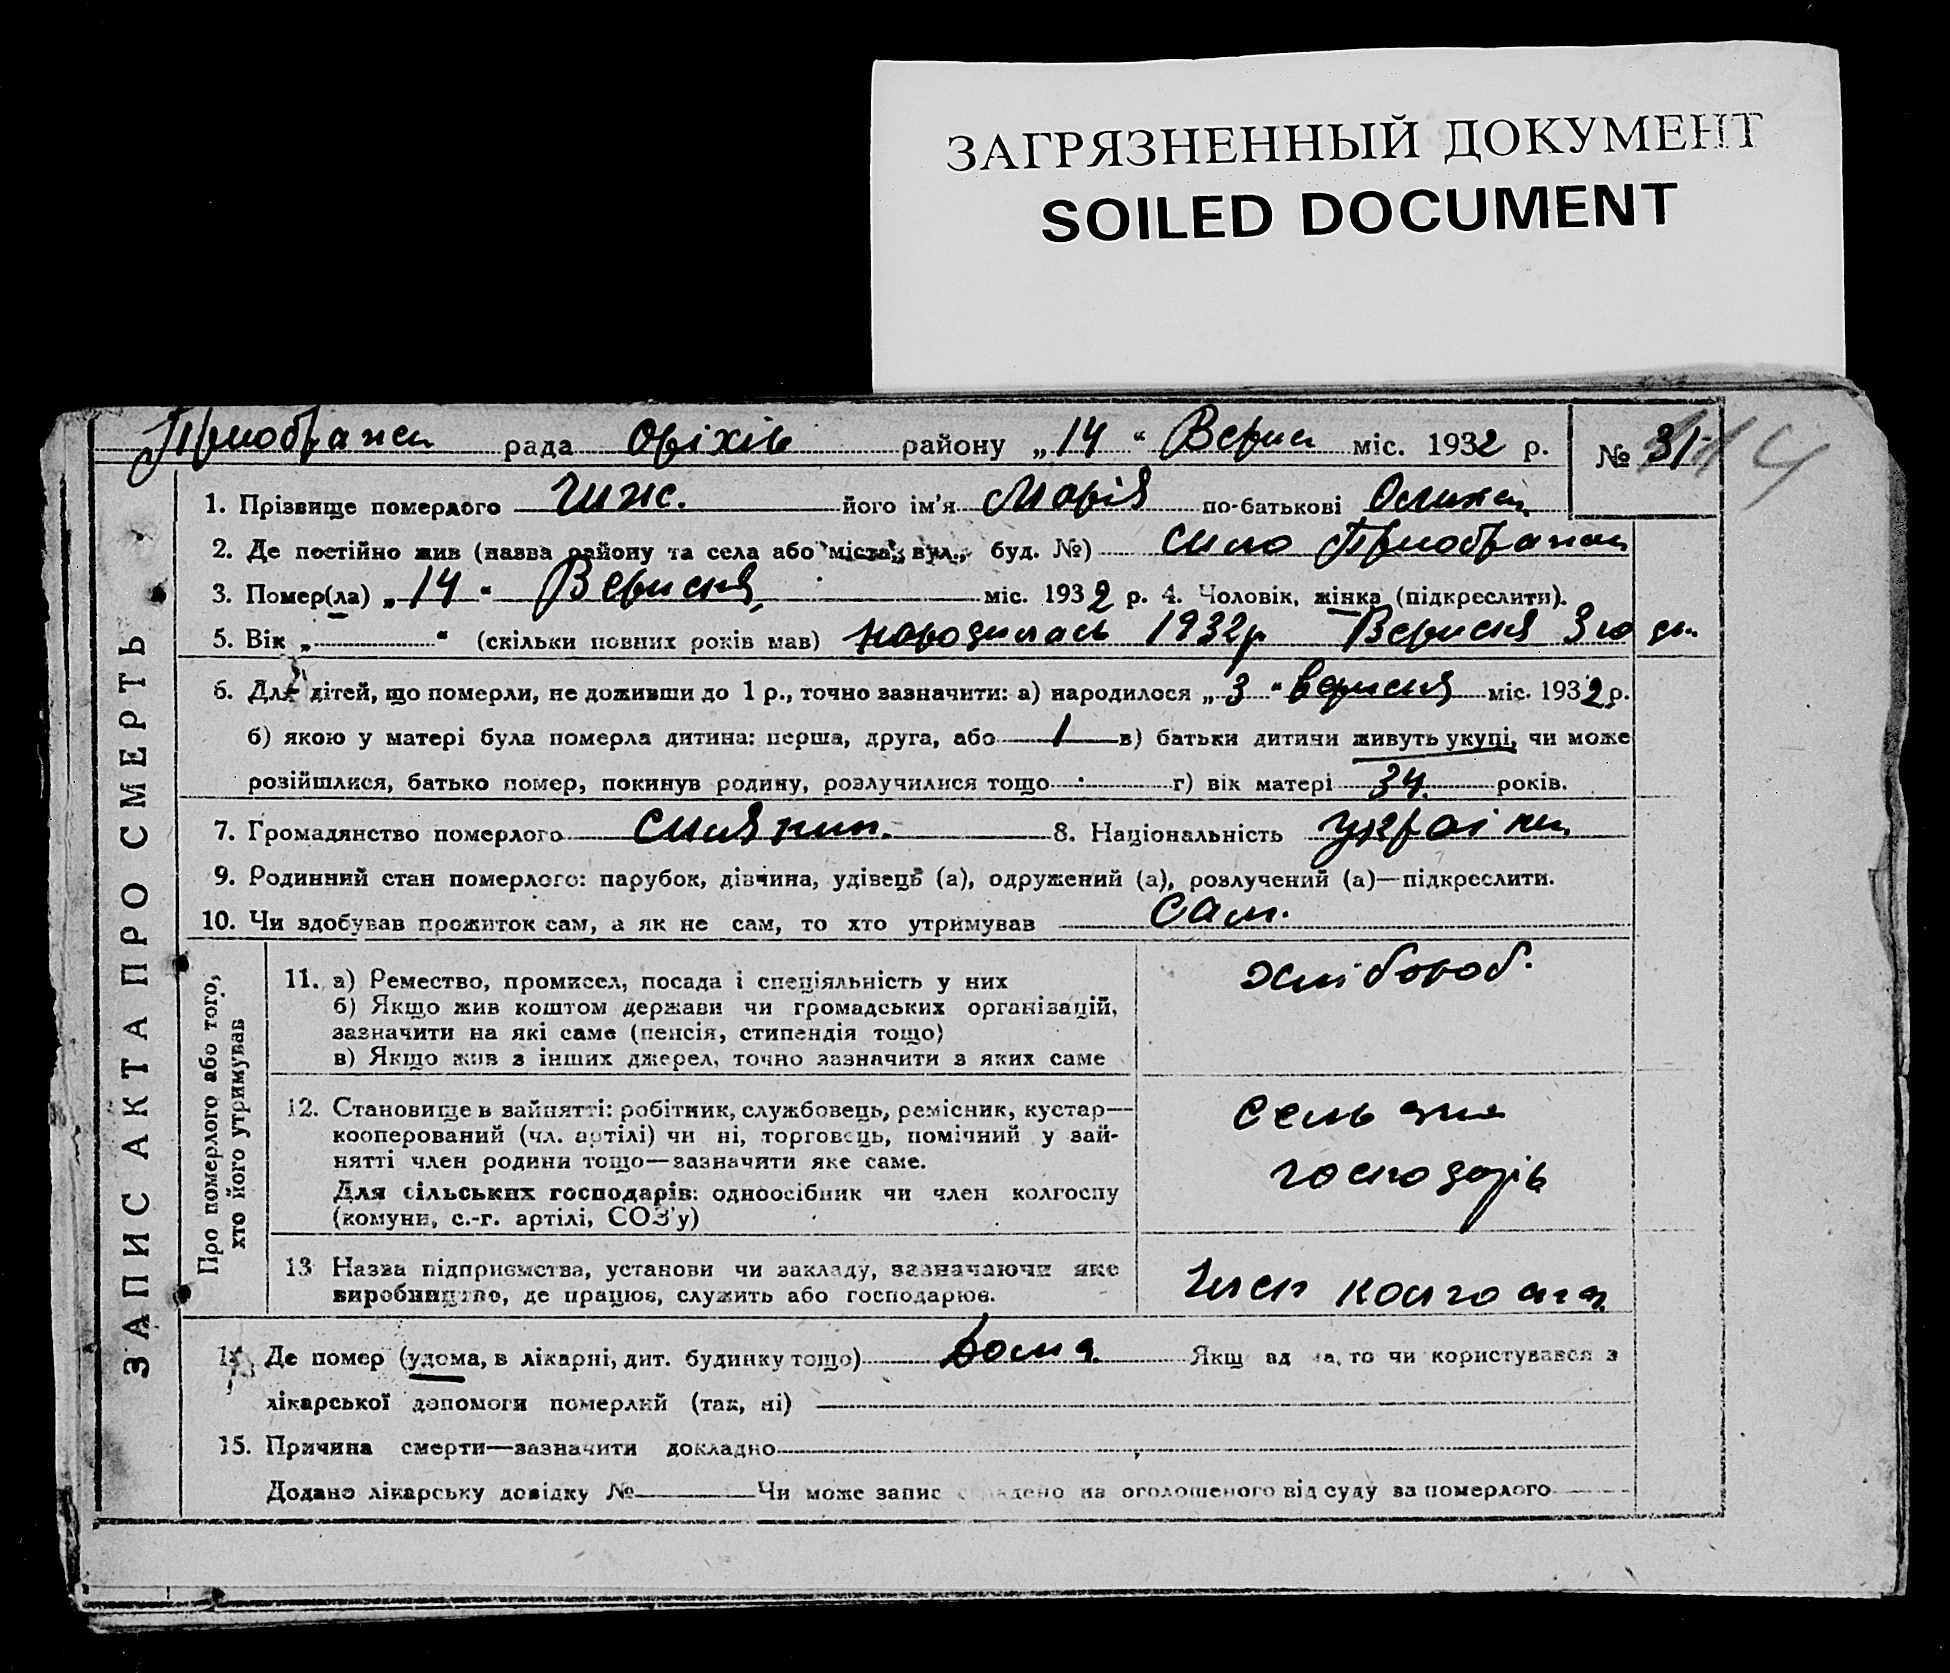 ЗАГРЯЗНЕННЫЙ ДОКУМЕНТ
SOILED DOCUMENT
рада Оріхів району „14“ Верес міс. 1932 р. № 31
1. Прізвище померлого Чиж. його ім'я Марія по-батькові
2. Де постійно жив (назва району та села або міста, вул., буд. №) село
3. Помер(ла) „14“ Вересня міс. 1932 р. 4. Чоловік, жінка (підкреслити).
5. Вік „ “ (скільки повних років мав) народилась 1932 р Вересня 3го дн.
6. Для дітей, що померли, не доживши до 1 р., точно зазначити: а) народилося „3“ вересня міс. 1932 р.
б) якою у матері була померла дитина: перша, друга, або 1 в) батьки дитини живуть укупі, чи може
розійшлися, батько помер, покинув родину, розлучилися тощо г) вік матері 34. років.
7. Громадянство померлого 8. Національність україн.
9. Родинний стан померлого: парубок, дівчина, удівець (а), одружений (а), розлучений (а)—підкреслити.
10. Чи здобував прожиток сам, а як не сам, то хто утримував сам.
ЗАПИС АКТА ПРО СМЕРТЬ
Про померлого або того,
хто його утримував
11. а) Ремество, промисел, посада і спеціяльність у них хлібороб.
б) Якщо жив коштом держави чи громадських організацій,
зазначити на які саме (пенсія, стипендія тощо)
в) Якщо жив з інших джерел, точно зазначити з яких саме
12. Становище в зайнятті: робітник, службовець, ремісник, кустар—
кооперований (чл. артілі) чи ні, торговець, помічний у зай-
нятті член родини тощо—зазначити яке саме.
Для сільських господарів: одноосібник чи член колгоспу
(комуни, с.-г. артілі, СОЗ'у)
господарів
13 Назва підприємства, установи чи закладу, зазначаючи яке
виробництво, де працює, служить або господарює.
Член колгоспу
14. Де помер (удома, в лікарні, дит. будинку тощо) Дома. Якщ то чи користувався з
лікарської допомоги померлий (так, ні)
15. Причина смерти—зазначити докладно
Додано лікарську довідку № Чи може запис на оголошеного від суду за померлого